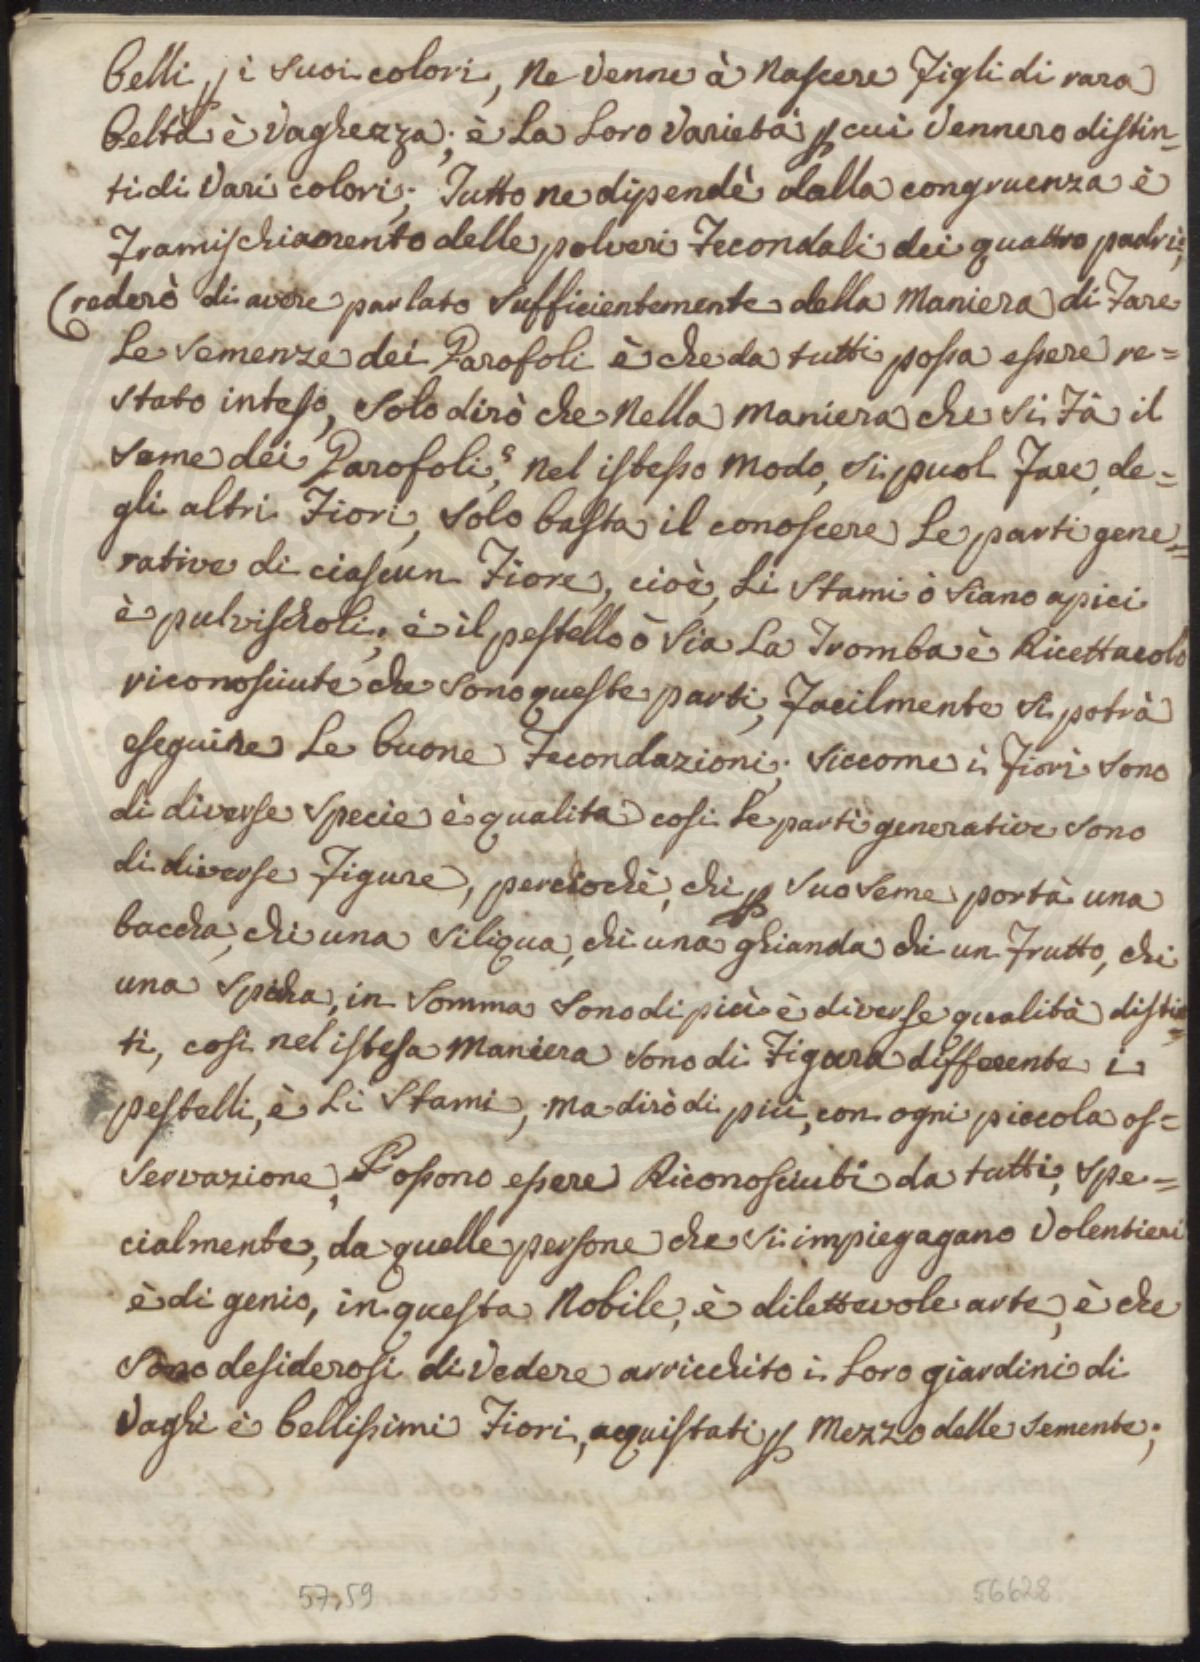 belli, p i suoi colori, ne venne à nascere figli di rara
beltà è vaghezza; è la loro varietà p cui vennero distin=
ti di vari colori; Tutto ne dipendè dalla congruenza è
framischiamento delle polveri fecondali dei quattro padri;
Crederò di avere parlato sufficientemente della maniera di fare
le semenze dei Garofoli è che da tutti possa essere re=
stato inteso, solo dirò che nella maniera che si fà il
seme dei Garofoli, nel istesso modo, si puol fare de=
gli altri Fiori, solo basta il conoscere le parti gene=
rative di ciascun Fiore, cioè, li stami ò siano apici
è pulvischoli; è il pestello ò sia la Tromba è Ricettacolo
riconosciute che sono queste parti, facilmente si potrà
eseguire le buone fecondazioni; siccome i Fiori sono
di diverse specie è qualita così le parti generative sono
di diverse figure, perciochè, chi p suo seme portà una
baccha, chi una siliqua, chi una ghianda chi un frutto, chi
una spicha, in somma sono di più è diverse qualità distin=
ti, così nel istesa maniera sono di figura differente i
pestelli, è li stami, ma dirò di più, con ogni piccola os=
servazione, Possono essere Riconosciuti da tutti, spe=
cialmente, da quelle persone che si impiegagano volentieri
è di genio, in questa nobile, è dilettevole arte, è che
sono desiderosi di vedere arricchito i loro giardini di
vaghi è bellissimi Fiori, acquistati p mezzo delle semente;
57,59
56628